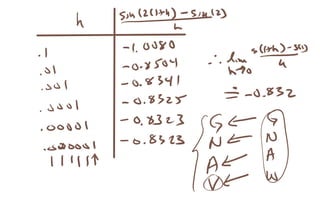 h sin(2(1+h)) - sin(2) / h
.1 -1.0080
.01 -0.8504
.001 -0.8341
.0001 -0.8325
.00001 -0.8323
.000001 -0.8323
∴ lim h→0 s(1+h) - s(1) / h
≐ -0.832
G ← G
N ← N
A ← A
V ← W